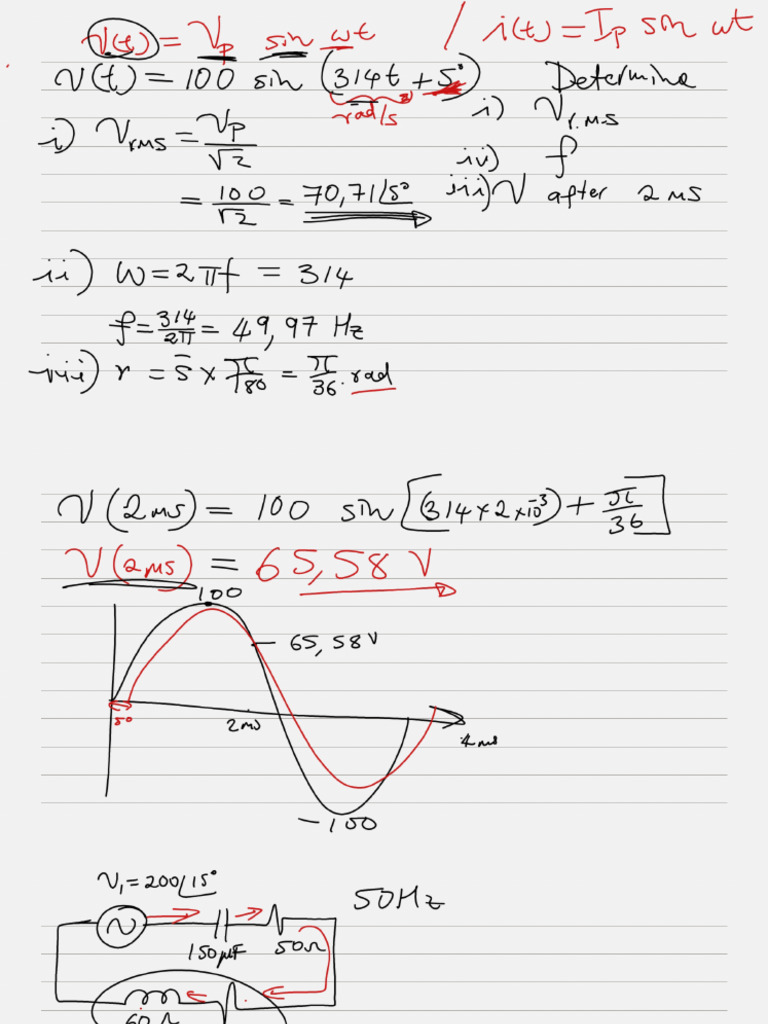 V(t) = Vp sin wt / i(t) = Ip sin wt
V(t) = 100 sin (314t + 5°) Determine
rad/s
i) Vr.m.s
i) Vrms = Vp/√2
iv) f
= 100/√2 = 70,71∠5°
iii) V after 2ms
ii) ω = 2πf = 314
f = 314/2π = 49,97 Hz
iii) r = 5 × π/180 = π/36 rad
V(2ms) = 100 sin [(314 × 2 × 10⁻³) + π/36]
V(2ms) = 65,58 V
100
65,58V
50
2ms
4ms
-100
V₁ = 200∠15°
50Hz
150μF
50Ω
60Ω